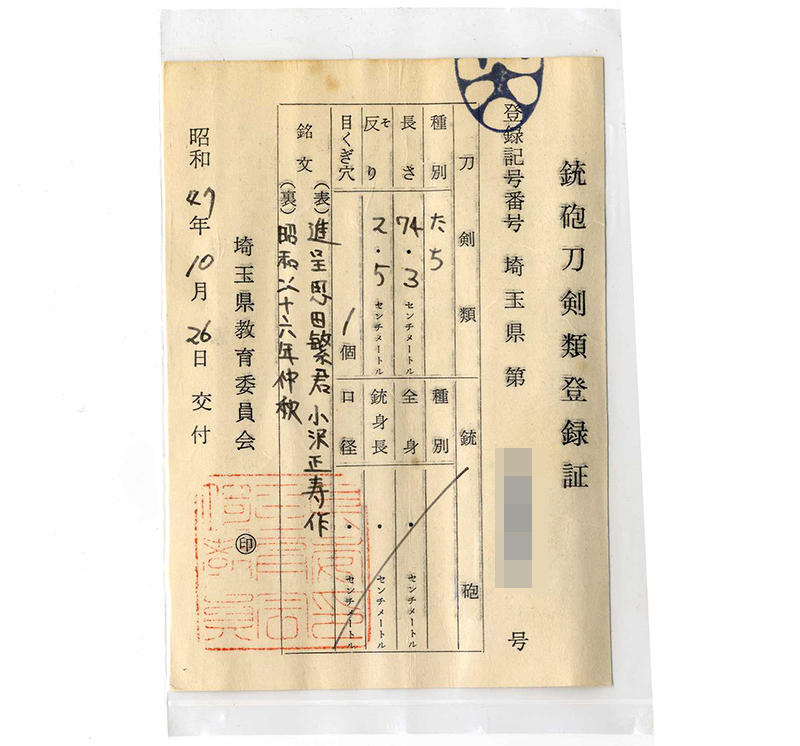 銃砲刀剣類登録証
登録記号番号 埼玉県 第 号
刀剣類 銃砲
種別 たち 種別
長さ 74.3 センチメートル 全身 ・ センチメートル
反り そ 2.5 センチメートル 銃身長 ・ センチメートル
目くぎ穴 1個 口径 ・ センチメートル
銘文 (表) 進呈恩田繁君 小沢正寿作
(裏) 昭和四十六年仲秋
埼玉県教育委員会 印
昭和47年10月26日交付